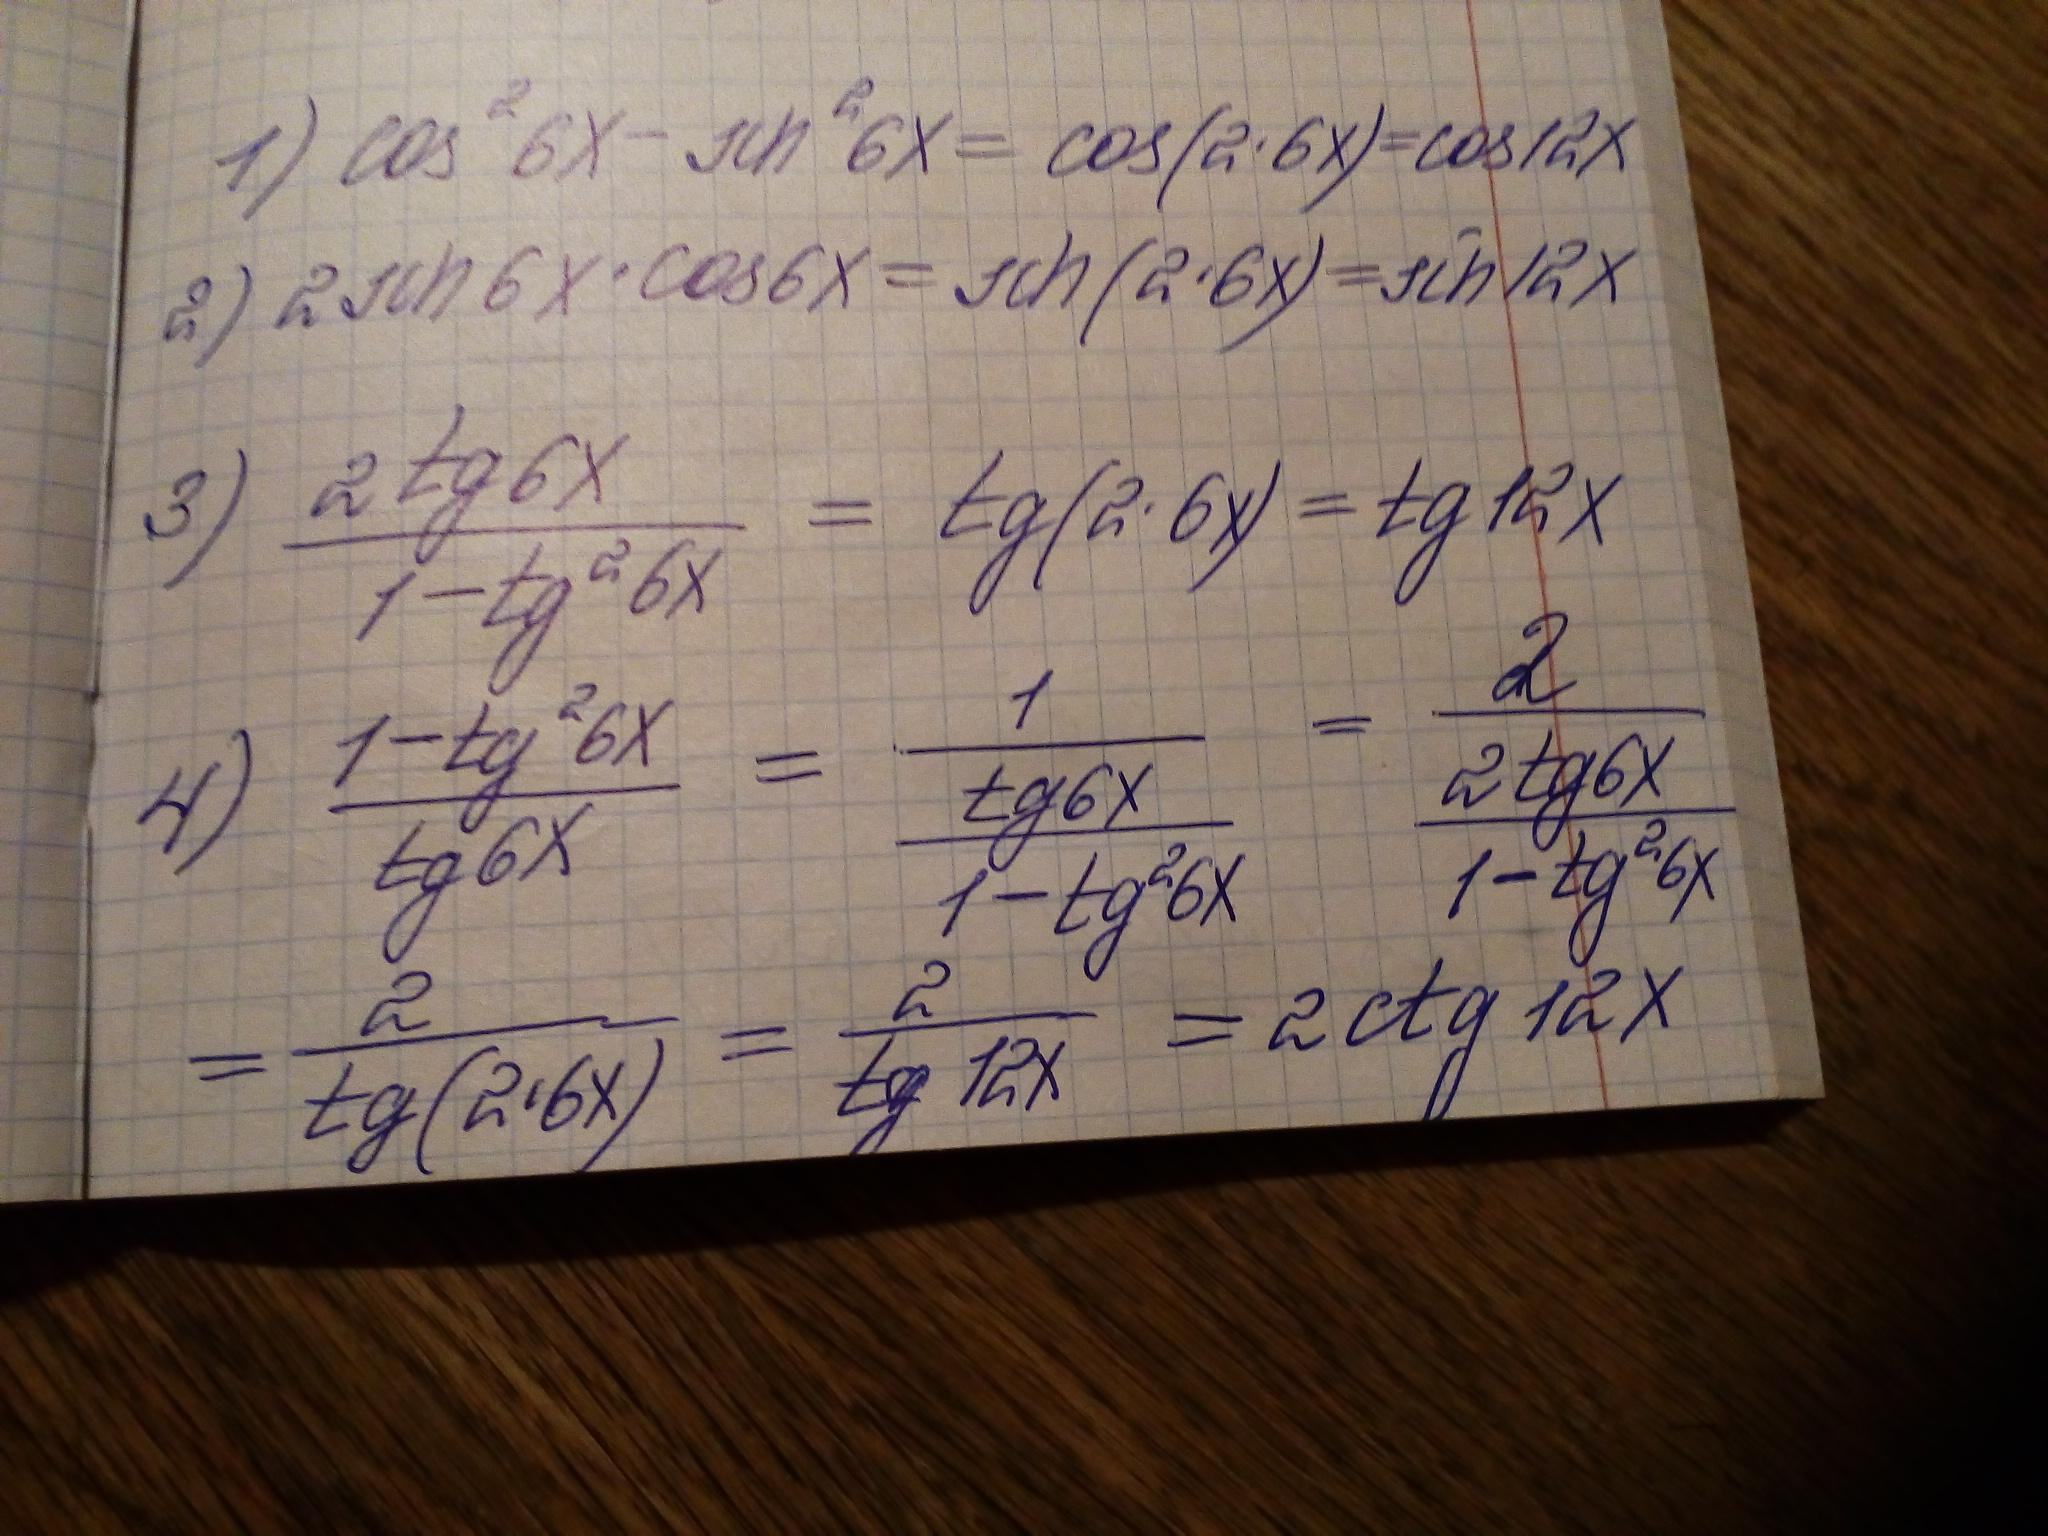 1) cos²6x - sin²6x = cos(2·6x) = cos12x
2) 2sin6x·cos6x = sin(2·6x) = sin12x
3) \frac{2tg6x}{1-tg²6x} = tg(2·6x) = tg12x
4) \frac{1-tg²6x}{tg6x} = \frac{1}{\frac{tg6x}{1-tg²6x}} = \frac{2}{\frac{2tg6x}{1-tg²6x}}
= \frac{2}{tg(2·6x)} = \frac{2}{tg12x} = 2ctg12x